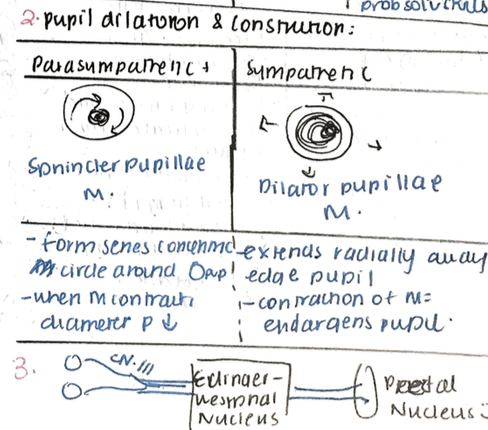 prob solv skills
2. pupil dilatoron & Constrution:
Parasympathetic +
Sympathetic
Sphincter Pupillae
M.
Dilator pupillae
M.
- form series concentric
circle around
- when M contracti
diameter P ↓
- extends radially away
edge pupil
- contraction of M =
endargens pupil.
3.
CN. III
Edinger-
Westphal
Nucleus
Pretectal
Nucleus